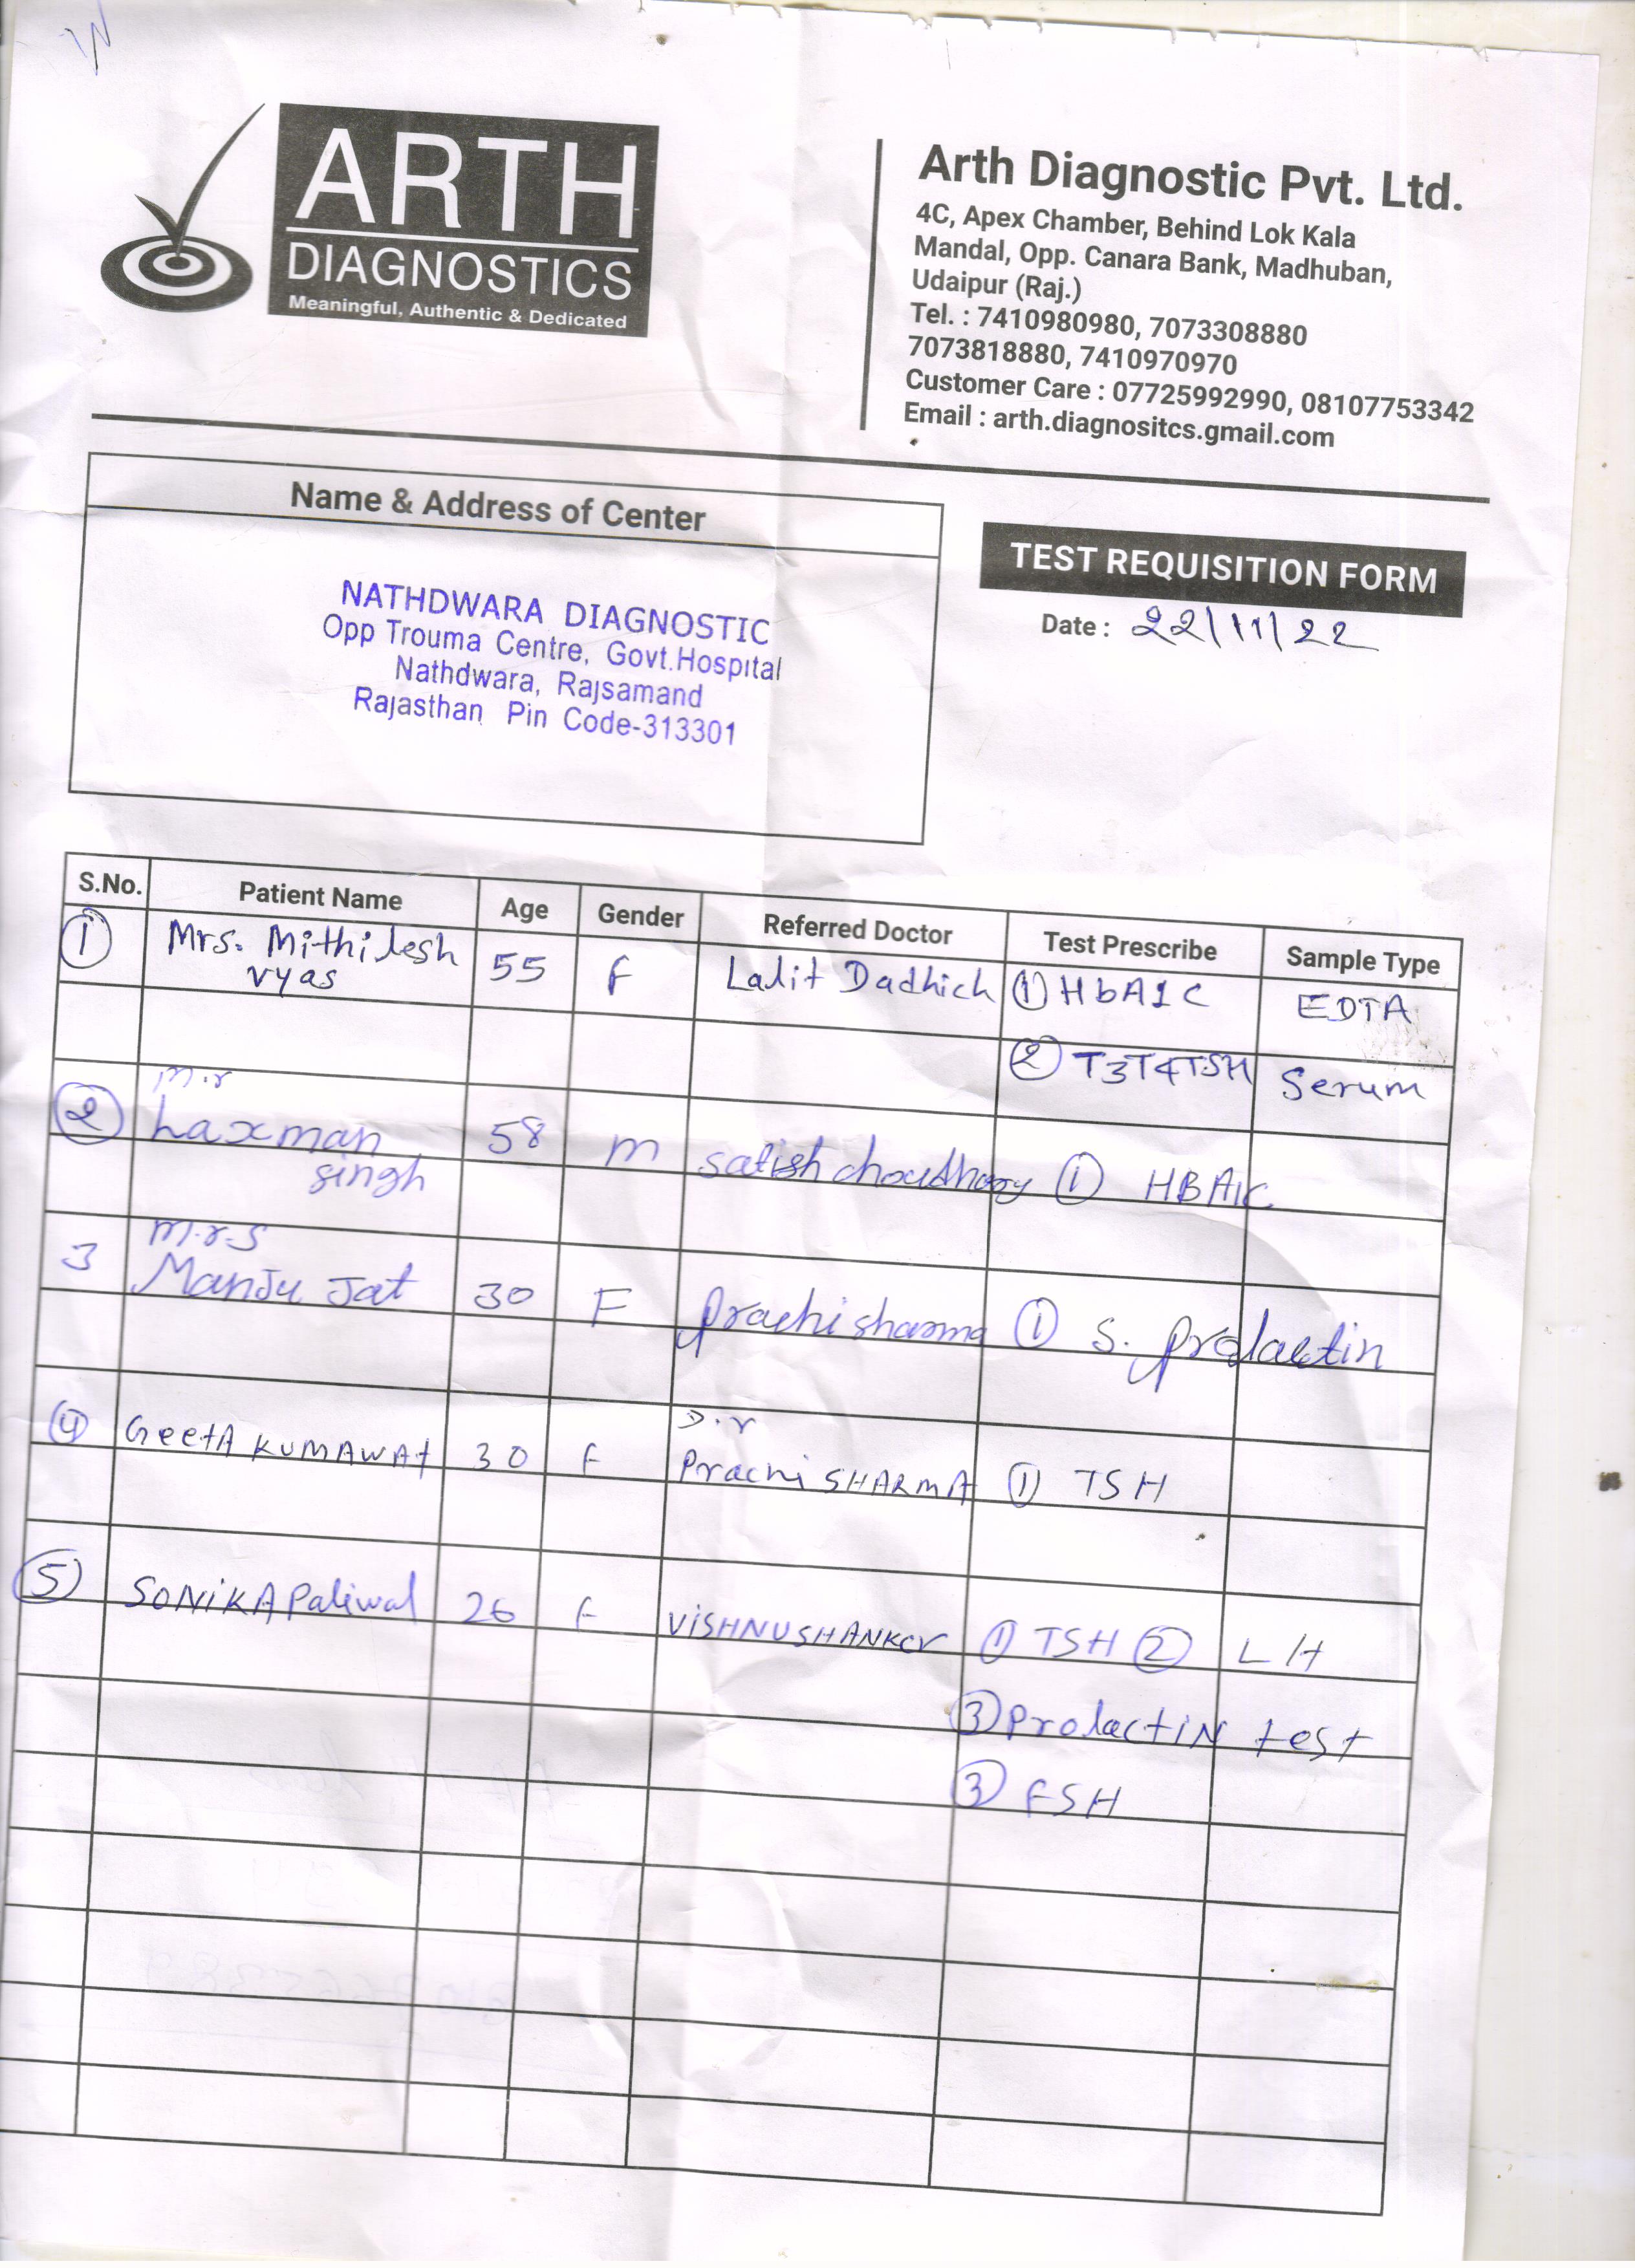 ARTH
DIAGNOSTICS
Meaningful, Authentic & Dedicated
Arth Diagnostic Pvt. Ltd.
4C, Apex Chamber, Behind Lok Kala
Mandal, Opp. Canara Bank, Madhuban,
Udaipur (Raj.)
Tel. : 7410980980, 7073308880
7073818880, 7410970970
Customer Care : 07725992990, 08107753342
Email : arth.diagnositcs.gmail.com
Name & Address of Center
NATHDWARA DIAGNOSTIC
Opp Trouma Centre, Govt.Hospital
Nathdwara, Rajsamand
Rajasthan Pin Code-313301
TEST REQUISITION FORM
Date : 22/11/22
S.No. Patient Name Age Gender Referred Doctor Test Prescribe Sample Type
1 Mrs. Mithilesh 55 F Lalit Dadhich 1 HbA1C EDTA
vyas
2 T3T4TSH Serum
M.r
2 Laxman 58 m satish choudhary 1 HBA1C
singh
M.r.s
3 Manju Jat 30 F prachi sharma 1 S. prolactin
D.r
4 GeetA KUMAWAt 30 F Prachi SHARMA 1 TSH
5 SONiKA Paliwal 26 F ViSHNUSHANKer 1 TSH 2 LH
3 ProlactiN test
3 FSH